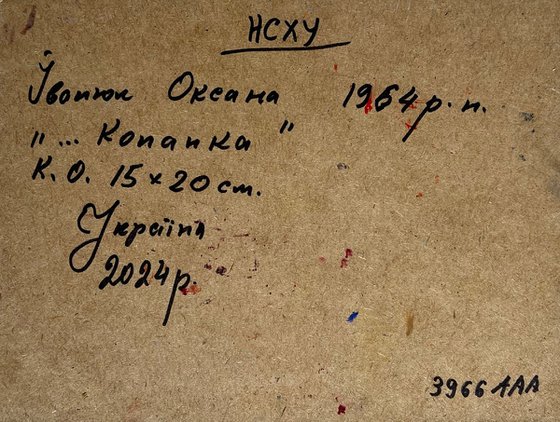 НСХУ
Ївонюк Оксана 1964 р. н.
"... Копанка"
К. О. 15 × 20 см.
Україна
2024 р.
3966 ААА